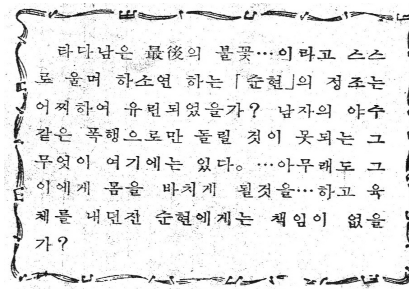 타다남은 最後의 불꽃…이라고 스스
로 울며 하소연 하는 「순현」의 정조는
어찌하여 유린되었을가? 남자의 야수
같은 폭행으로만 돌릴 것이 못되는 그
무엇이 여기에는 있다。…아무래도 그
이에게 몸을 바치게 될것을…하고 육
체를 내던진 순현에게는 책임이 없을
가?